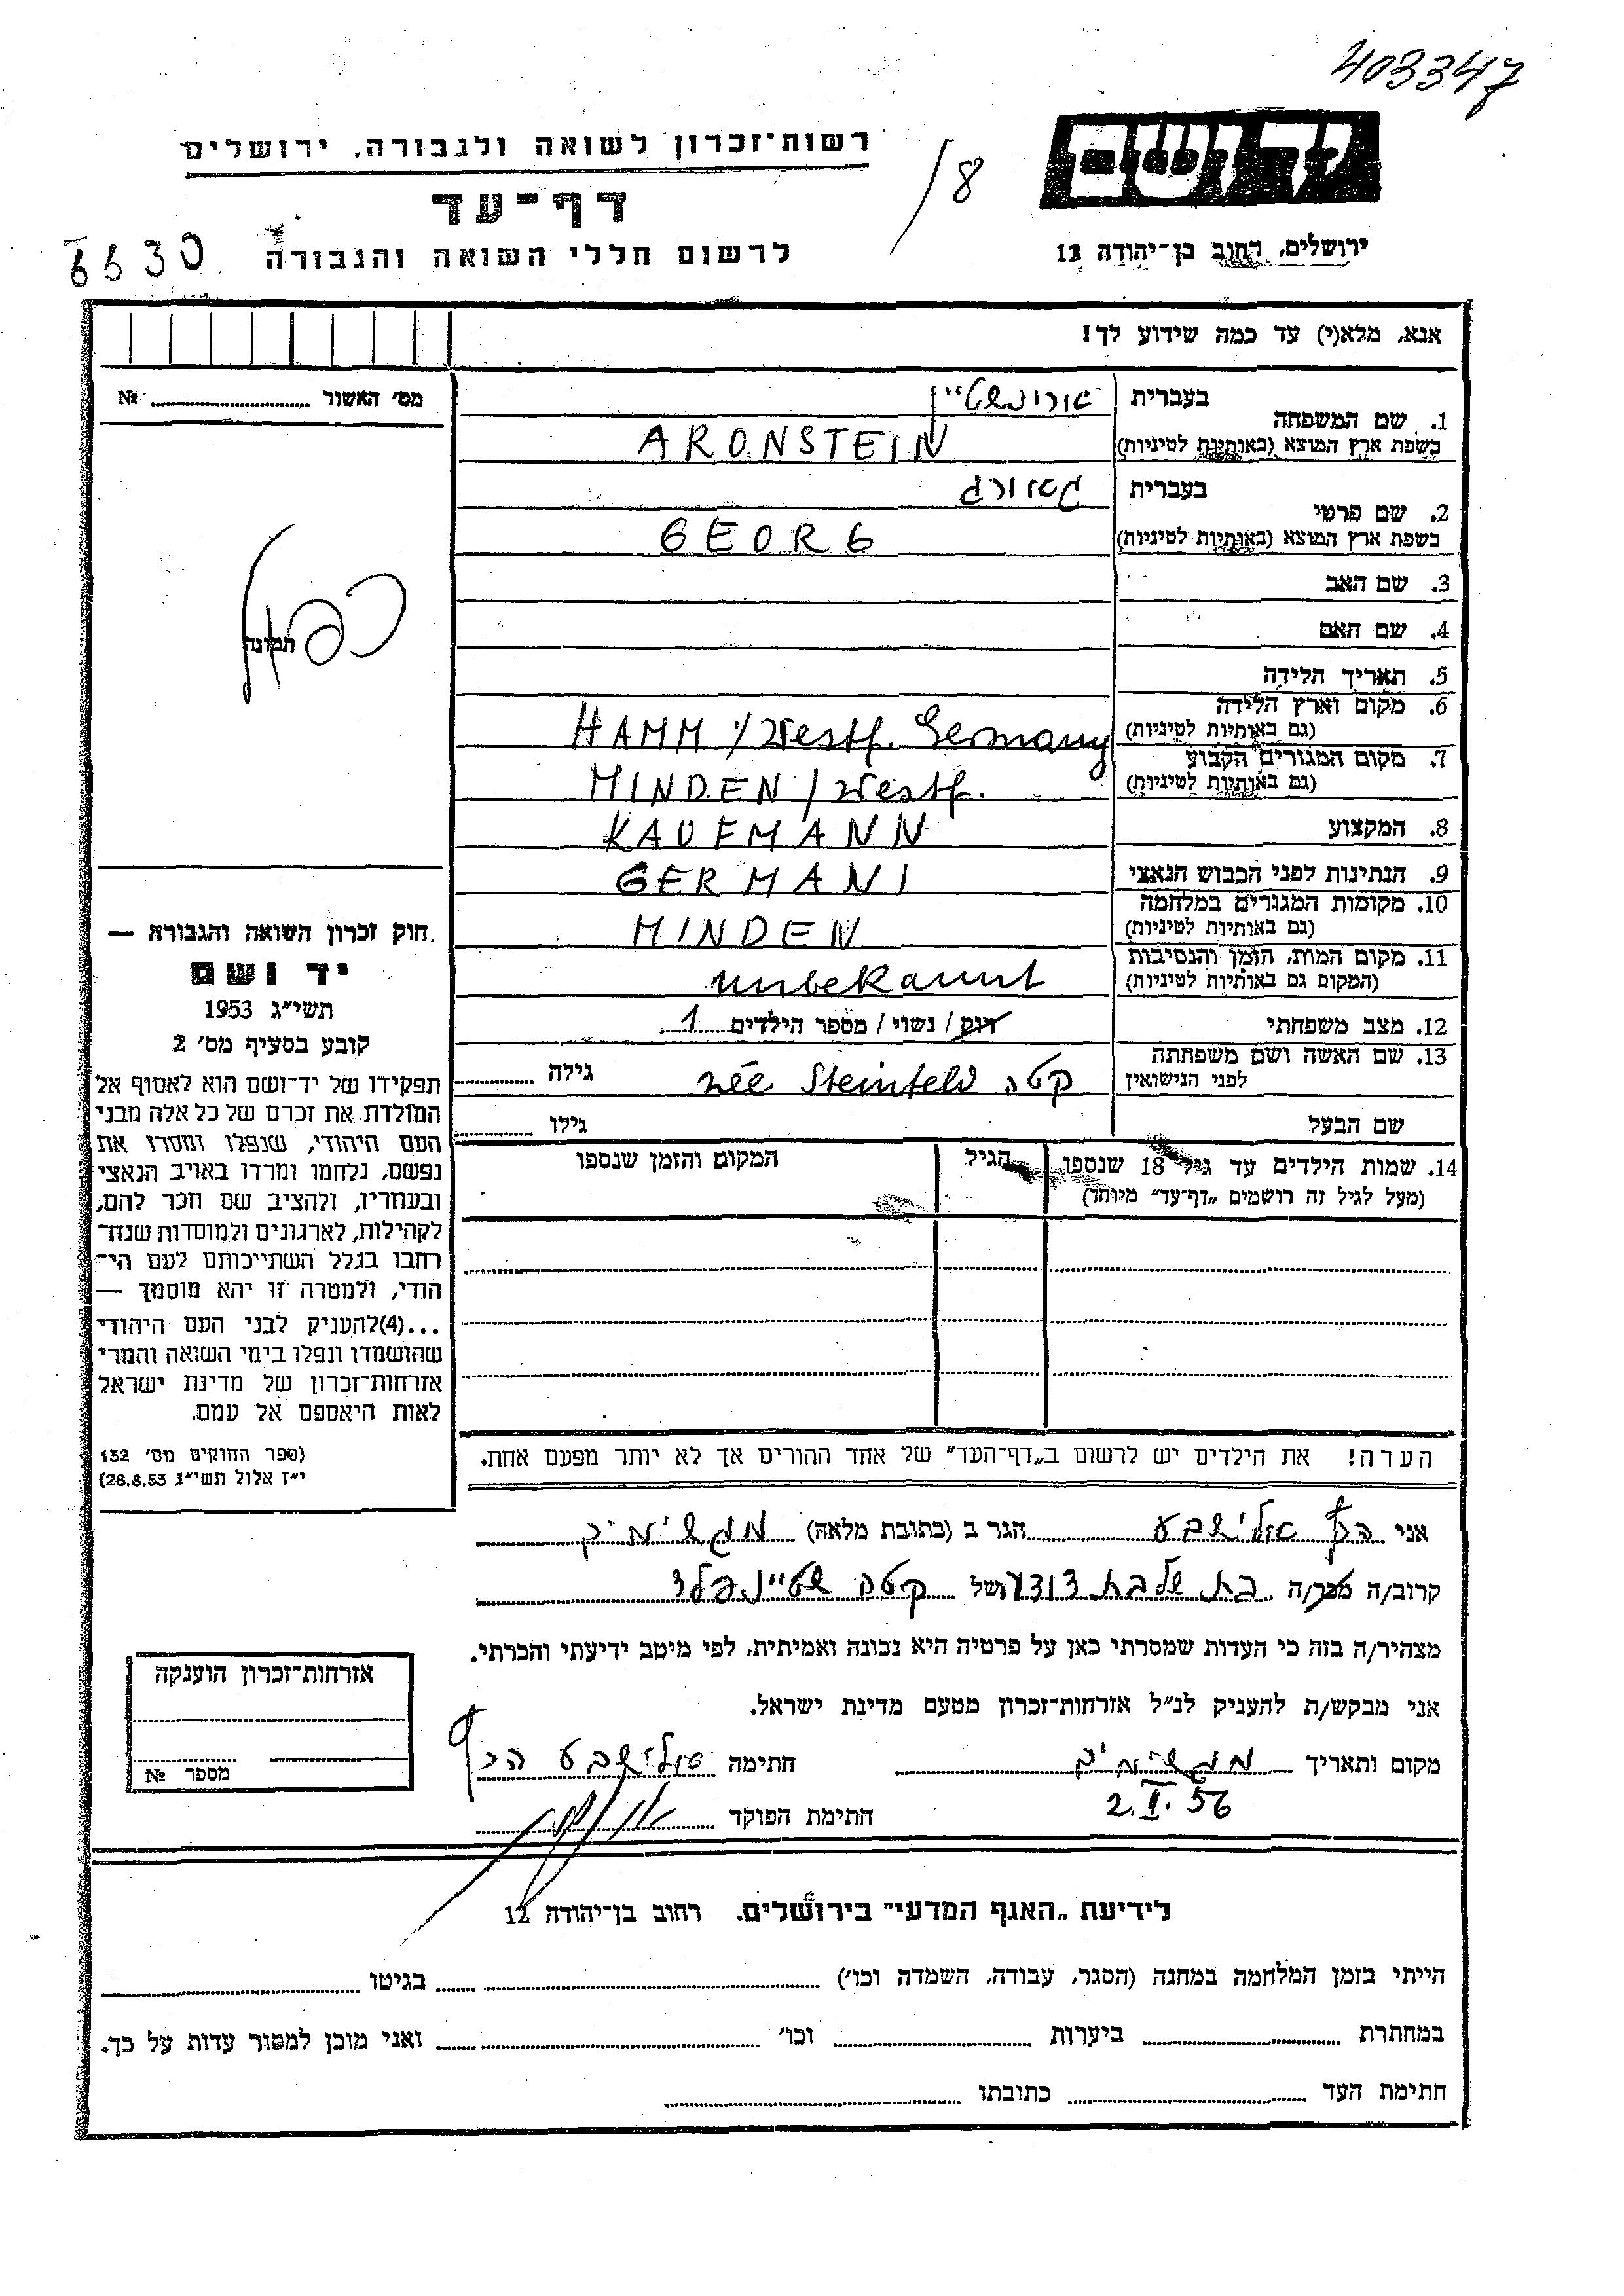 403347
יד ושם
רשות־זכרון לשואה ולגבורה, ירושלים
/8
דף־עד
ירושלים, רחוב בן־יהודה 12
לרשום חללי השואה והגבורה
6630
אנא, מלא(י) עד כמה שידוע לך!
מס׳ האשור № 
1. שם המשפחה
בעברית ארונשטיין
בשפת ארץ המוצא (באותיות לטיניות) ARONSTEIN
2. שם פרטי
בעברית גאורג
בשפת ארץ המוצא (באותיות לטיניות) GEORG
3. שם האב
4. שם האם
תמונה
כפול
5. תאריך הלידה
6. מקום וארץ הלידה
(גם באותיות לטיניות) HAMM i/Westf. Germany
7. מקום המגורים הקבוע
(גם באותיות לטיניות) MINDEN / Westf.
8. המקצוע KAUFMANN
9. הנתינות לפני הכבוש הנאצי GERMANI
10. מקומות המגורים במלחמה
(גם באותיות לטיניות) MINDEN
11. מקום המות, הזמן והנסיבות
(המקום גם באותיות לטיניות) unbekannt
12. מצב משפחתי רווק / נשוי / מספר הילדים 1
13. שם האשה ושם משפחתה
לפני הנישואין קטה née Steinfeld גילה
שם הבעל גילו
14. שמות הילדים עד גיל 18 שנספו הגיל המקום והזמן שנספו
(מעל לגיל זה רושמים „דף־עד” מיוחד)
חוק זכרון השואה והגבורה —
יד ושם
תשי״ג 1953
קובע בסעיף מס׳ 2
תפקידו של יד־ושם הוא לאסוף אל
המולדת את זכרם של כל אלה מבני
העם היהודי, שנפלו ומסרו את
נפשם, נלחמו ומרדו באויב הנאצי
ובעוזריו, ולהציב שם וזכר להם,
לקהילות, לארגונים ולמוסדות שנח־
רבו בגלל השתייכותם לעם הי־
הודי, ולמטרה זו יהא מוסמך —
...(4)להעניק לבני העם היהודי
שהושמדו ונפלו בימי השואה והמרי
אזרחות־זכרון של מדינת ישראל
לאות היאספם אל עמם.
(ספר החוקים מס׳ 132
י״ז אלול תשי״ג 28.8.53)
הערה! את הילדים יש לרשום ב„דף־העד” של אחד ההורים אך לא יותר מפעם אחת.
אני אלישבע הגר ב (כתובת מלאה)
קרוב/ה מכר/ה בת של בת דודה של קטה שטיינפלד
מצהיר/ה בזה כי העדות שמסרתי כאן על פרטיה היא נכונה ואמיתית, לפי מיטב ידיעתי והכרתי.
אני מבקש/ת להעניק לנ״ל אזרחות־זכרון מטעם מדינת ישראל.
מקום ותאריך חתימה אלישבע
2.II.56
חתימת הפוקד
אזרחות־זכרון הוענקה
מספר №
לידיעת „האגף המדעי” בירושלים. רחוב בן־יהודה 12
הייתי בזמן המלחמה במחנה (הסגר, עבודה, השמדה וכו׳) בגיטו
במחתרת ביערות וכו׳ ואני מוכן למסור עדות על כך.
חתימת העד כתובתו